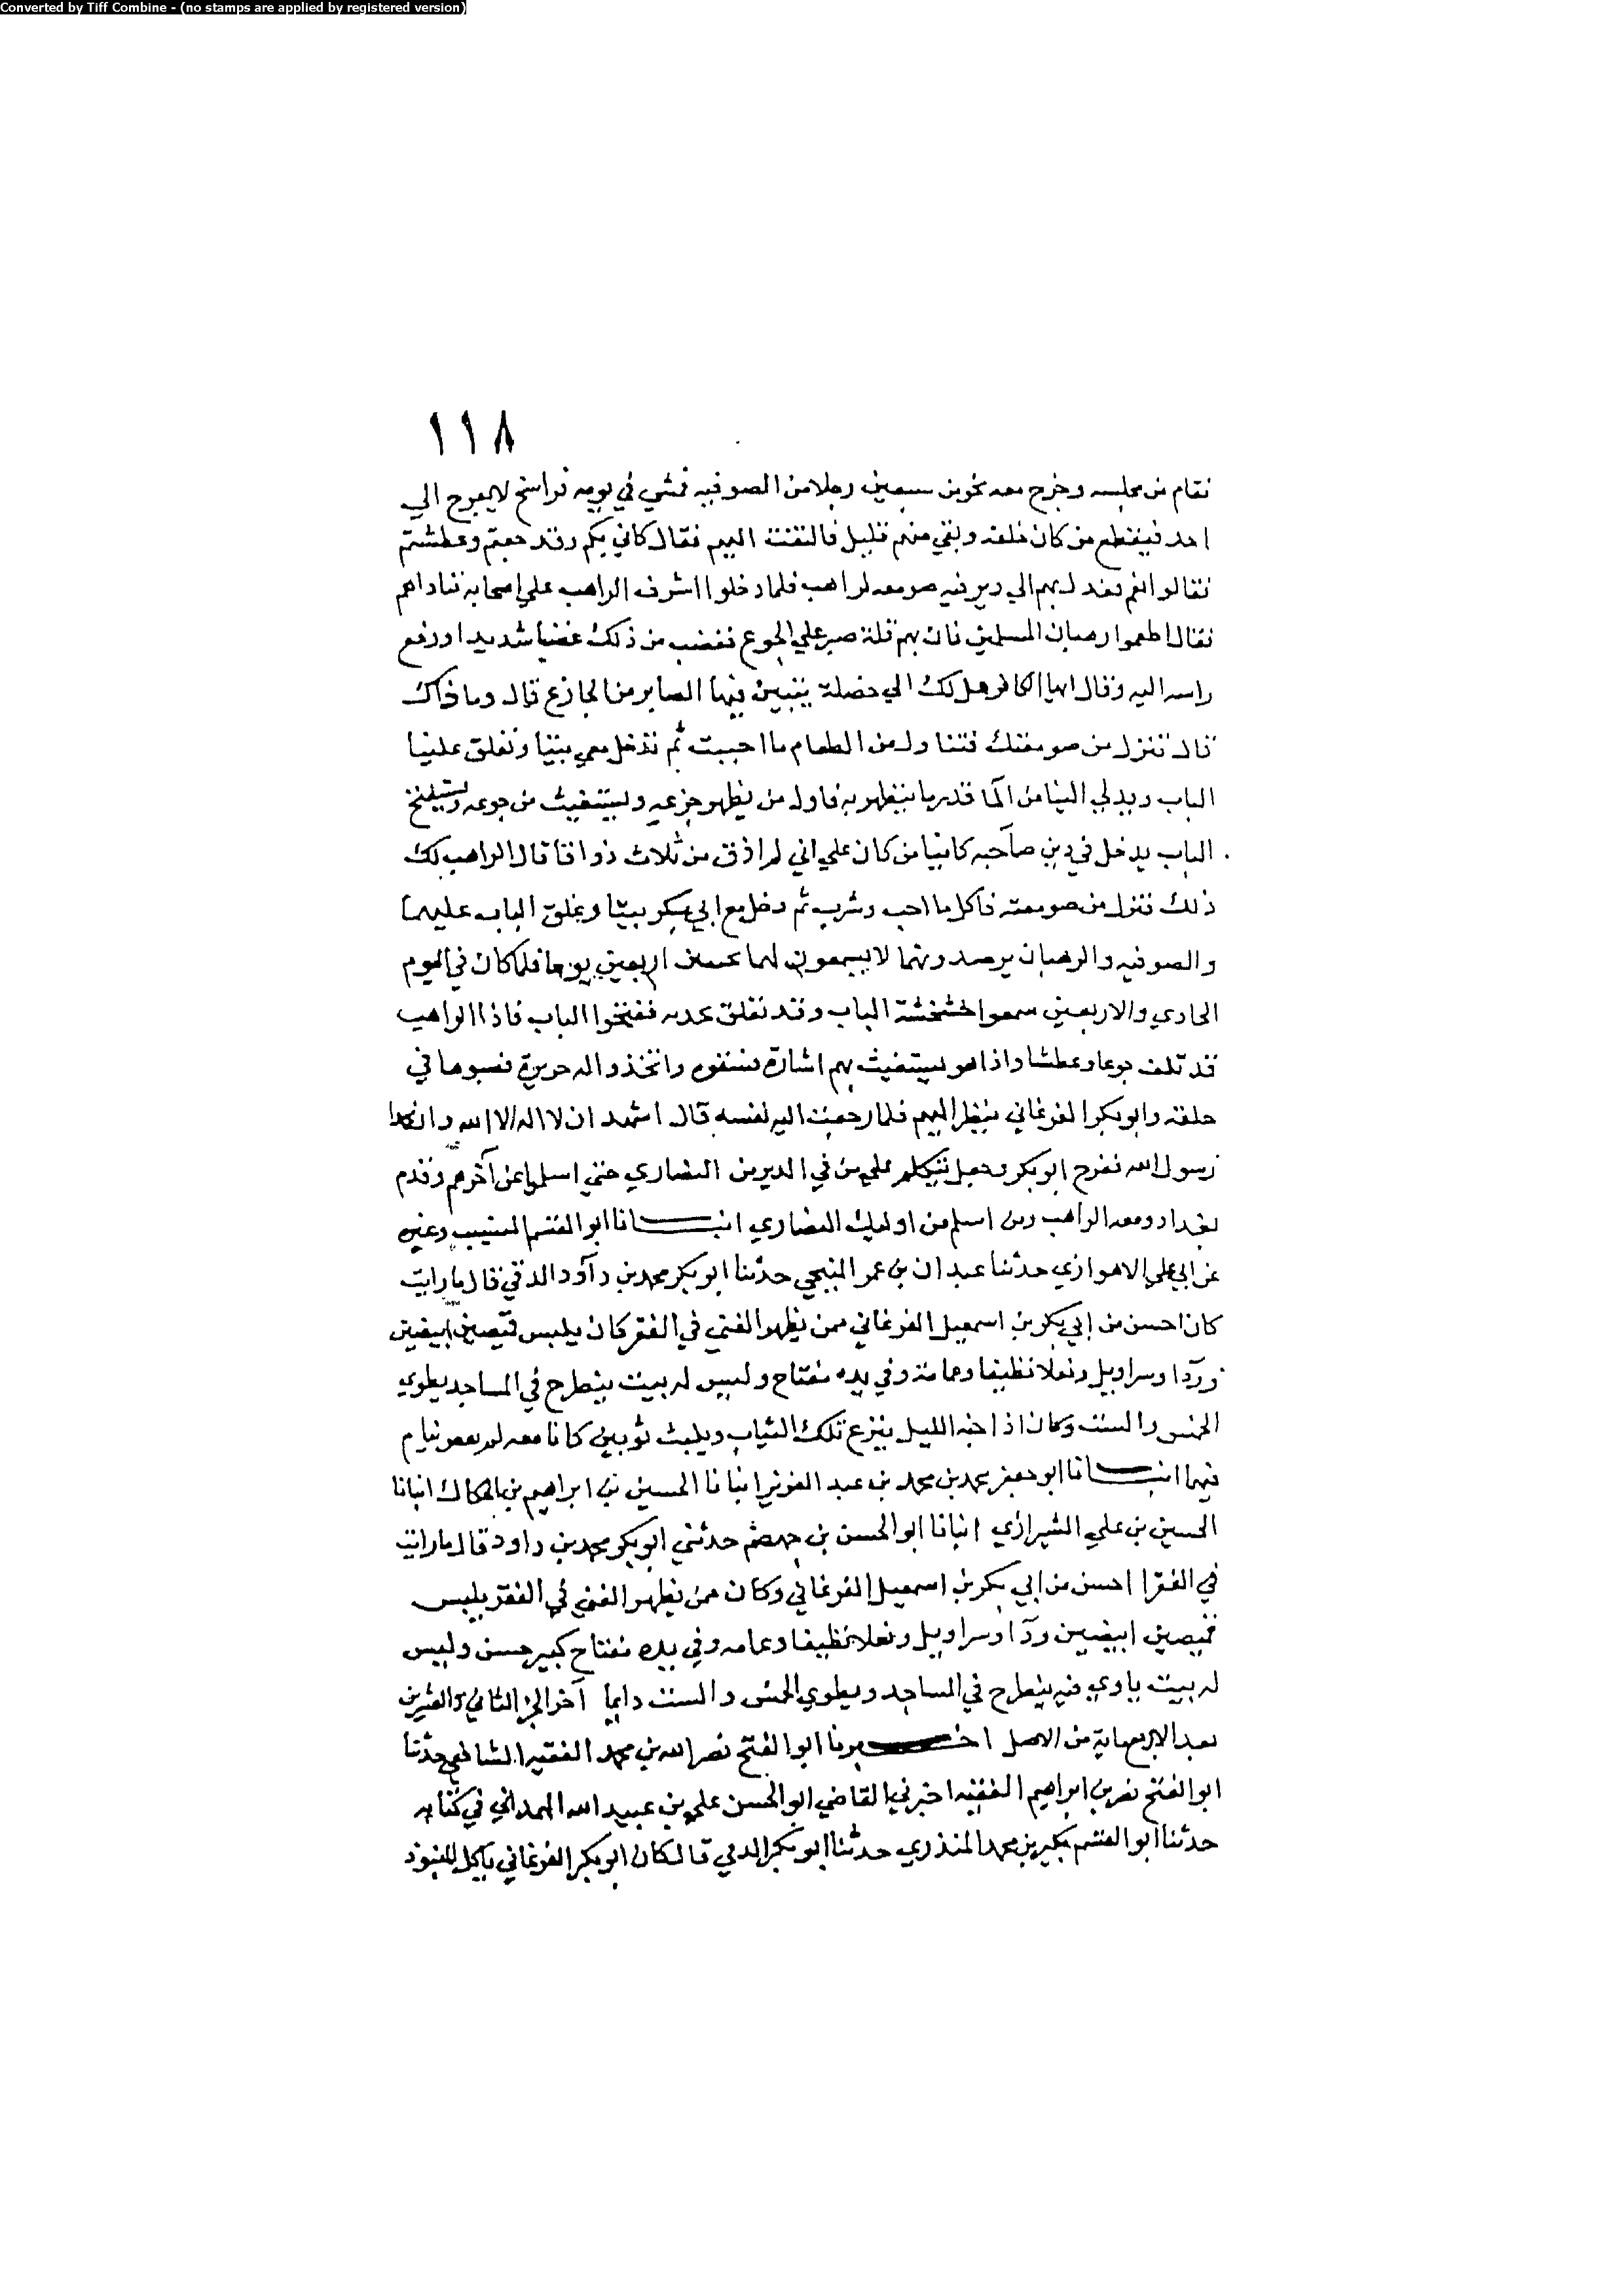 Converted by Tiff Combine - (no stamps are applied by registered version)
١١٨
فقام من مجلسه وخرج معه نحو من سبعين رجلا من الصوفيه فمشي في يومه فراسخ لا يعرج الي
احد فينقطع من كان خلفه وبقي منهم قليل فالتفت اليهم فقال كاني بكم وقد جعتم وعطشتم
فقالوا نعم فعدل بهم الي دير فيه صومعه لراهب فلما دخلوا اشرف الراهب علي اصحابه فناداهم
فقال اطعموا رهبان المسلمين فان بهم قلة صبر علي الجوع فغضب من ذلك غضبا شديدا ورفع
راسه اليه وقال ايها الكافر هل لك الي خصلة يتبين فيها الصابر من الجازع قال وما ذاك
قال تنزل من صومعتك فتناول من الطعام ما احببت ثم تدخل معي بيتا وتغلق علينا
الباب ويدلي الينا من الما قدر ما نتطهر به فاول من يظهر جزعه ويستغيث من جوعه ويستفتح
الباب يدخل في دين صاحبه كاينا من كان علي اني لم اذق من ثلاث ذواقا قال الراهب لك
ذلك فنزل من صومعته فاكل ما احب وشرب ثم دخل مع ابي بكر بيتا وغلق الباب عليهما
والصوفيه والرهبان يرصدونهما لا يسمعون لهما حسا اربعين يوما فلما كان في اليوم
الحادي والاربعين سمعوا خشخشة الباب وقد تعلق به ففتحوا الباب فاذا الراهب
قد تلف جوعا وعطشا واذا هو يستغيث بهم اشارة فسقوه واتخذوا له حريرة فصبوها في
حلقه وابو بكر الفرغاني ينظر اليهم فلما رجعت اليه نفسه قال اشهد ان لا اله الا الله وان محمدا
رسول الله ففرح ابو بكر وجعل يتكلم علي من في الدير من النصاري حتي اسلموا عن آخرهم وقدم
بغداد ومعه الراهب ومن اسلم من اوليك النصاري انبانا ابو القسم النسيب وغيره
عن ابي علي الاهوازي حدثنا عبدان بن عمر المنبجي حدثنا ابو بكر محمد بن داود الدقي قال ما رايت
كان احسن من ابي بكر بن اسمعيل الفرغاني ممن يظهر الغني في الفقر كان يلبس قميصين ابيضين
وردا وسراويل ونعلا نظيفا وعمامة وفي يده مفتاح وليس له بيت ينطرح في المساجد يطوي
الخمس والست وكان اذا جنه الليل ينزع تلك الثياب ويلبث ثوبين كانا معه ينام
فيهما انبانا ابو جعفر محمد بن محمد بن عبد العزيز انبانا الحسين بن ابراهيم بن الحكاك انبانا
الحسين بن علي الشيرازي انبانا ابو الحسن بن جهضم حدثني ابو بكر محمد بن داود قال ما رايت
في الفقرا احسن من ابي بكر بن اسمعيل الفرغاني وكان ممن يظهر الغني في الفقر يلبس
قميصين ابيضين وردا وسراويل ونعلا نظيفا وعمامه وفي يده مفتاح كبير حسن وليس
له بيت ياوي فيه ينطرح في المساجد ويطوي الخمس والست دايما آخر الجز الثاني والعشرين
بعد الاربعماية من الاصل اخبرنا ابو الفتح نصر الله بن محمد الفقيه الشافعي حدثنا
ابو الفتح نصر بن ابراهيم الفقيه اخبرني القاضي ابو الحسن علي بن عبيد الله الهمداني في كتابه
حدثنا ابو القسم بكير بن محمد المنذري حدثنا ابو بكر الدقي قال كان ابو بكر الفرغاني ياكل